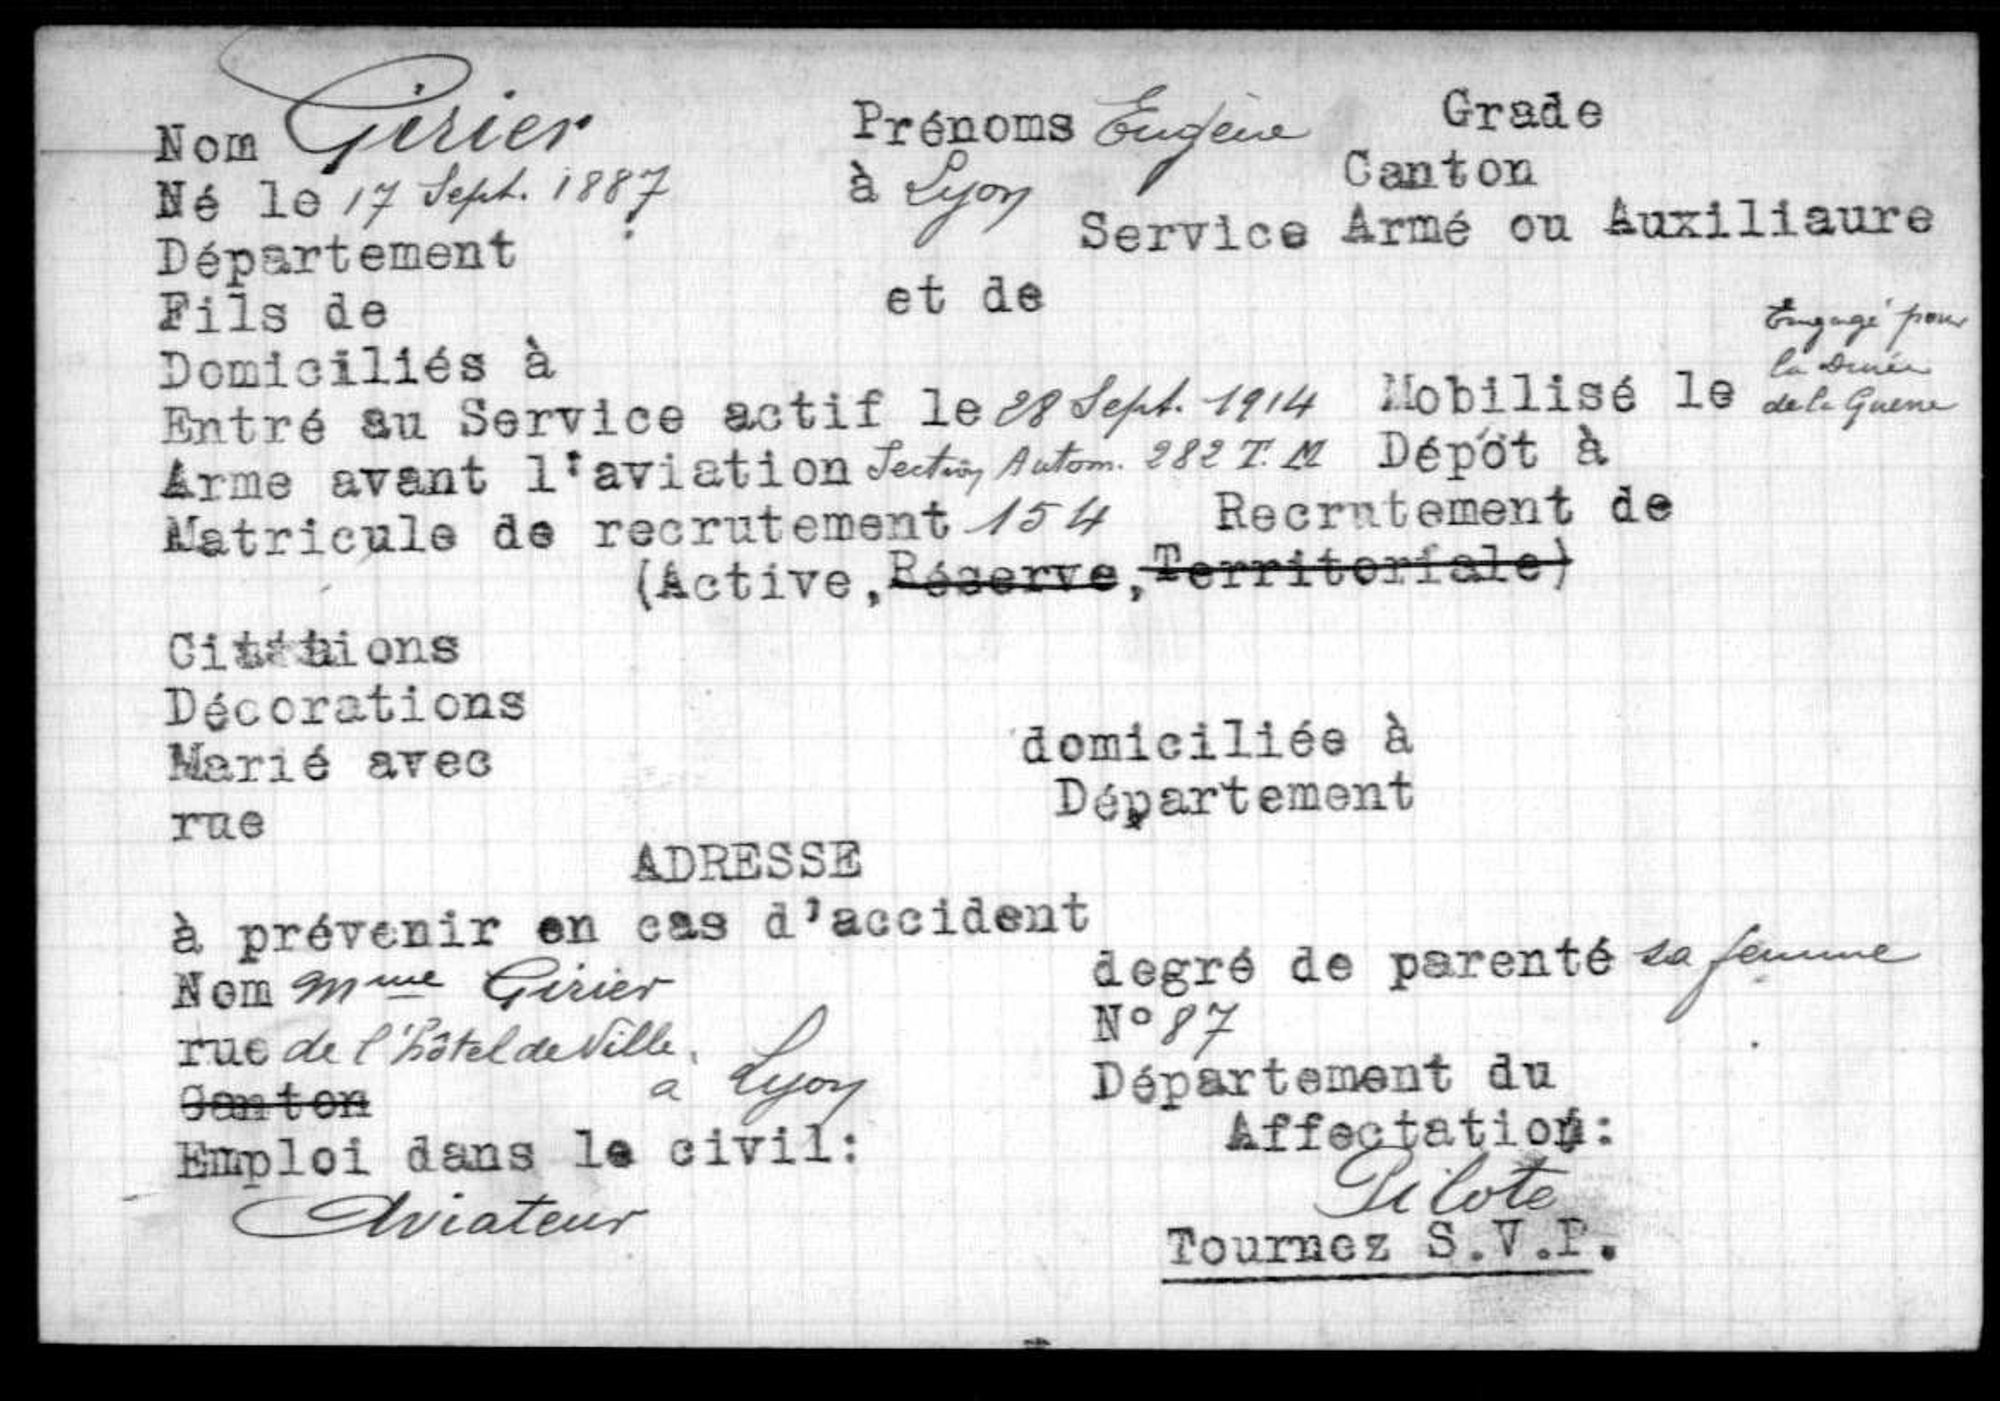 Nom Girier Prénoms Eugène Grade
Né le 17 Sept. 1887 à Lyon Canton
Département Service Armé ou Auxiliaure
Fils de et de
Domiciliés à
Entré au Service actif le 28 Sept. 1914 Mobilisé le Engagé pour la Durée de la Guerre
Arme avant l'aviation Section Autom. 282 T. M Dépôt à
Matricule de recrutement 154 Recrutement de
(Active, Réserve, Territoriale)
Citations
Décorations
Marié avec domiciliée à
rue Département
ADRESSE
à prévenir en cas d'accident
Nom Mme Girier degré de parenté sa femme
rue de l'hôtel de Ville. N° 87
a Lyon
Canton Département du
Emploi dans le civil: Affectation:
Aviateur Pilote
Tournez S.V.P.